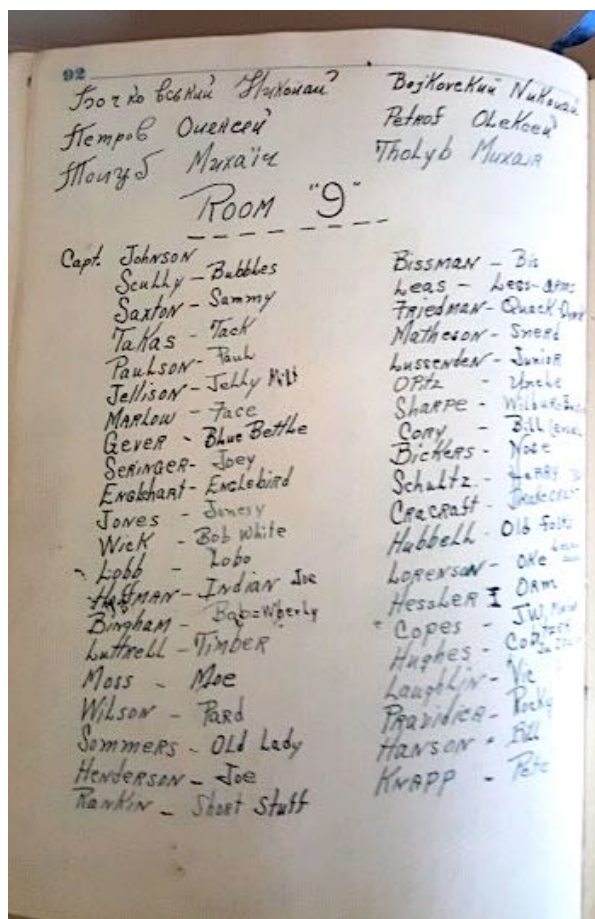 92
Бочковський Николай
Петров Олексей
Толуб Михаїл
Bojkovckuū Nukoлай
Petrof Olekceū
Tholyb Muxaiл
Room "9"
Capt. Johnson
Scully - Bubbles
Saxton - Sammy
Takas - Tack
Paulson - Paul
Jellison - Jelly
Marlow - Face
Gever - Blue Bettle
Seringer - Joey
Englehart - Englebird
Jones - Jonesy
Wick - Bob White
Lobb - Lobo
Hoffman - Indian Joe
Bingham -
Luttrell - Timber
Moss - Moe
Wilson - Pard
Sommers - Old Lady
Henderson - Joe
Rankin - Short Stuff
Bissman - Bis
Leas - Legs-arms
Friedman - Quack-
Matheson - Snerd
Lussenden - Junior
Opitz - Uncle
Sharpe - Wilbur
Cory - Bill
Bickers - Nose
Schultz - Larry
Cracraft -
Hubbell - Old Folks
Lorenson - Ore
Hessler I Orm
Copes - J.W.
Hughes -
Laughlin - Vic
Pravidica - Rocky
Hanson - Bill
Knapp - Pete